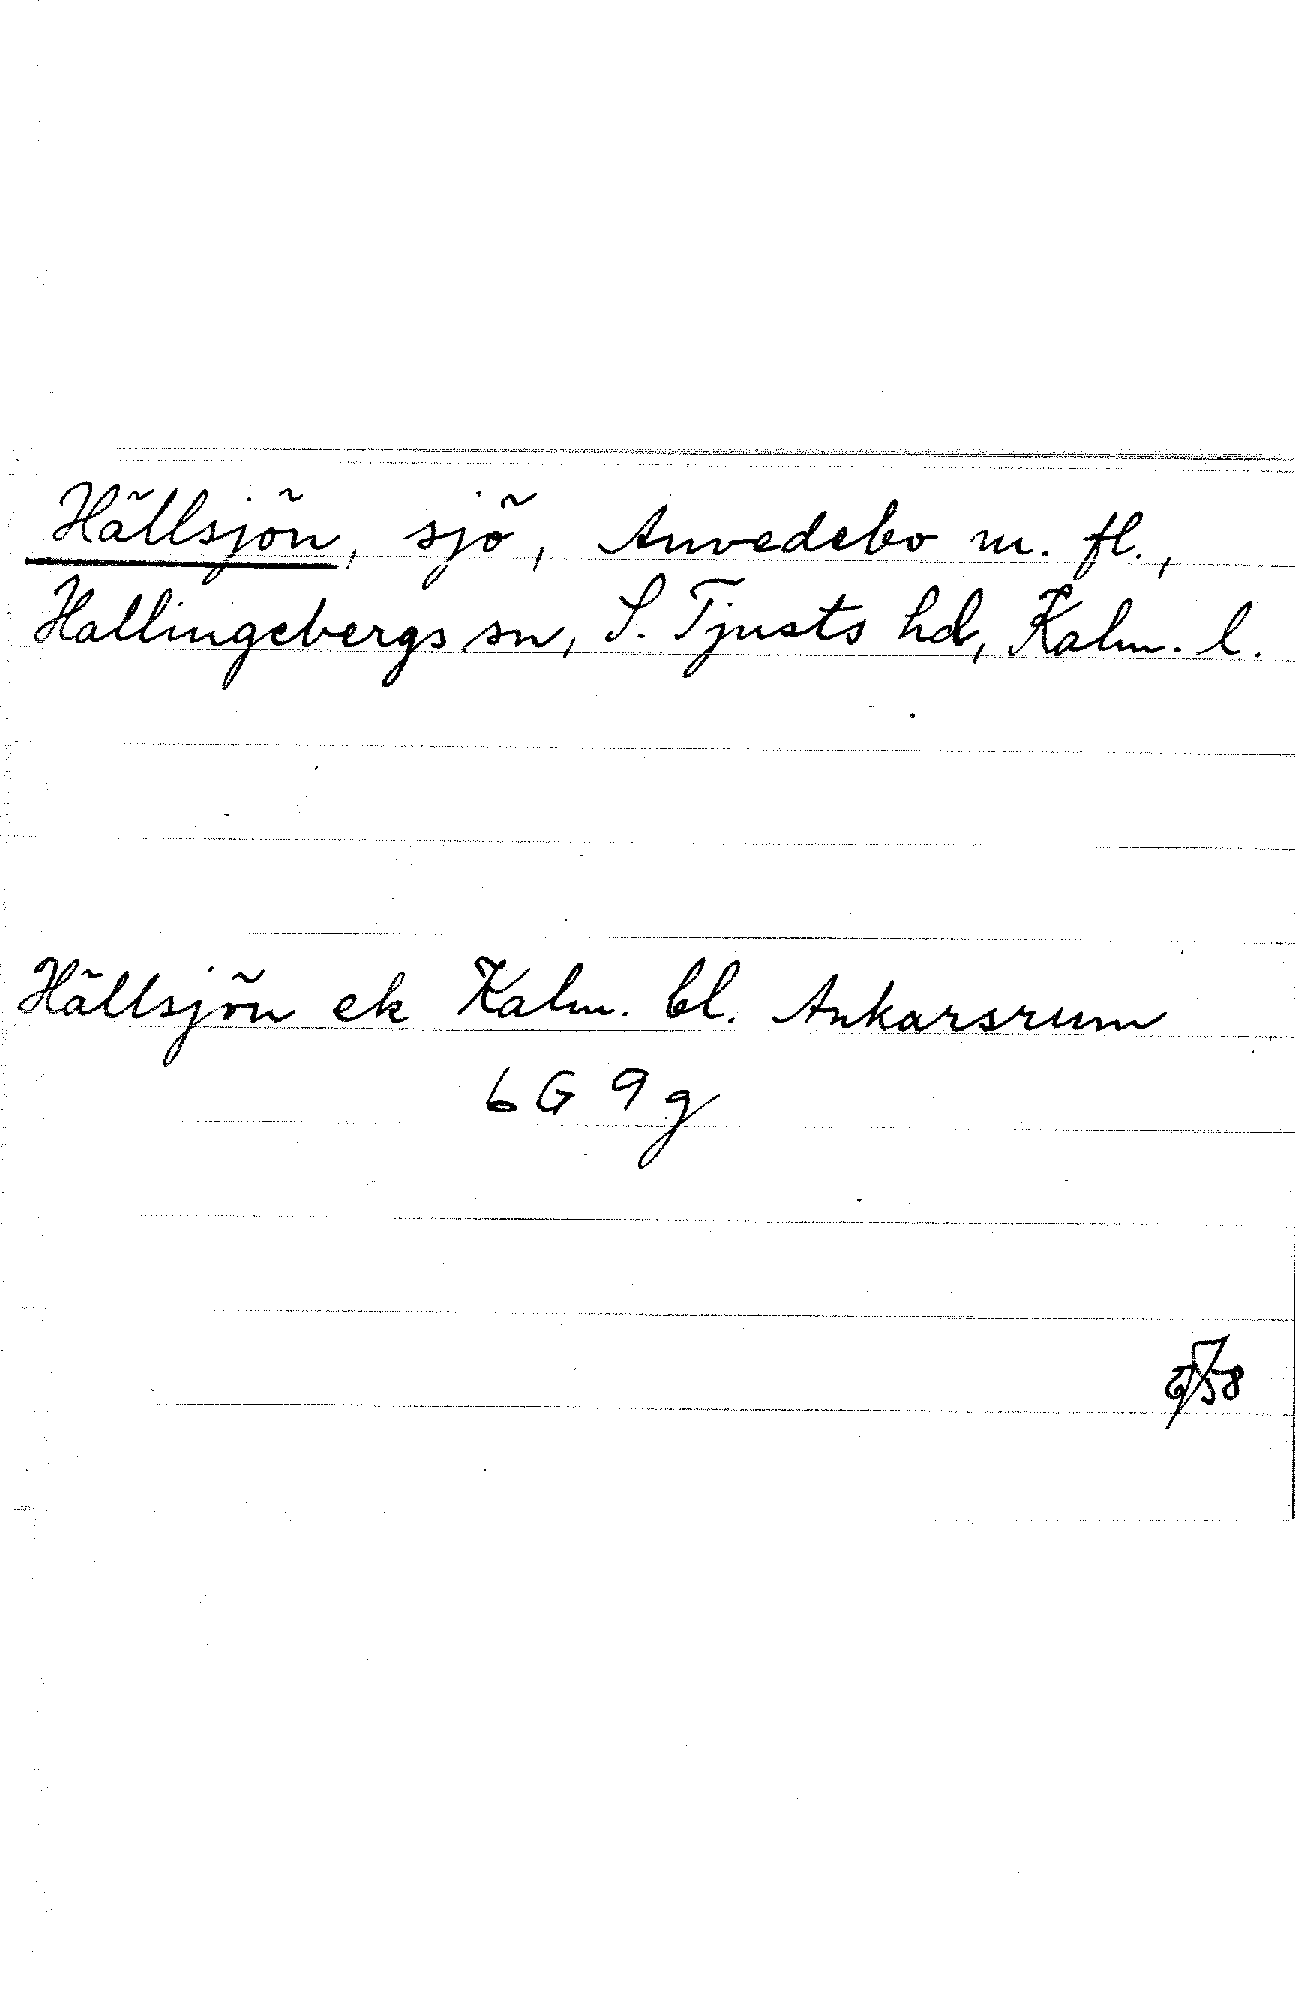 Hällsjön, sjö, Anvedebo m. fl.,
Hallingebergs sn, S. Tjusts hd, Kalm. l.
Hällsjön ek Kalm. bl. Ankarsrum
6 G 9 g